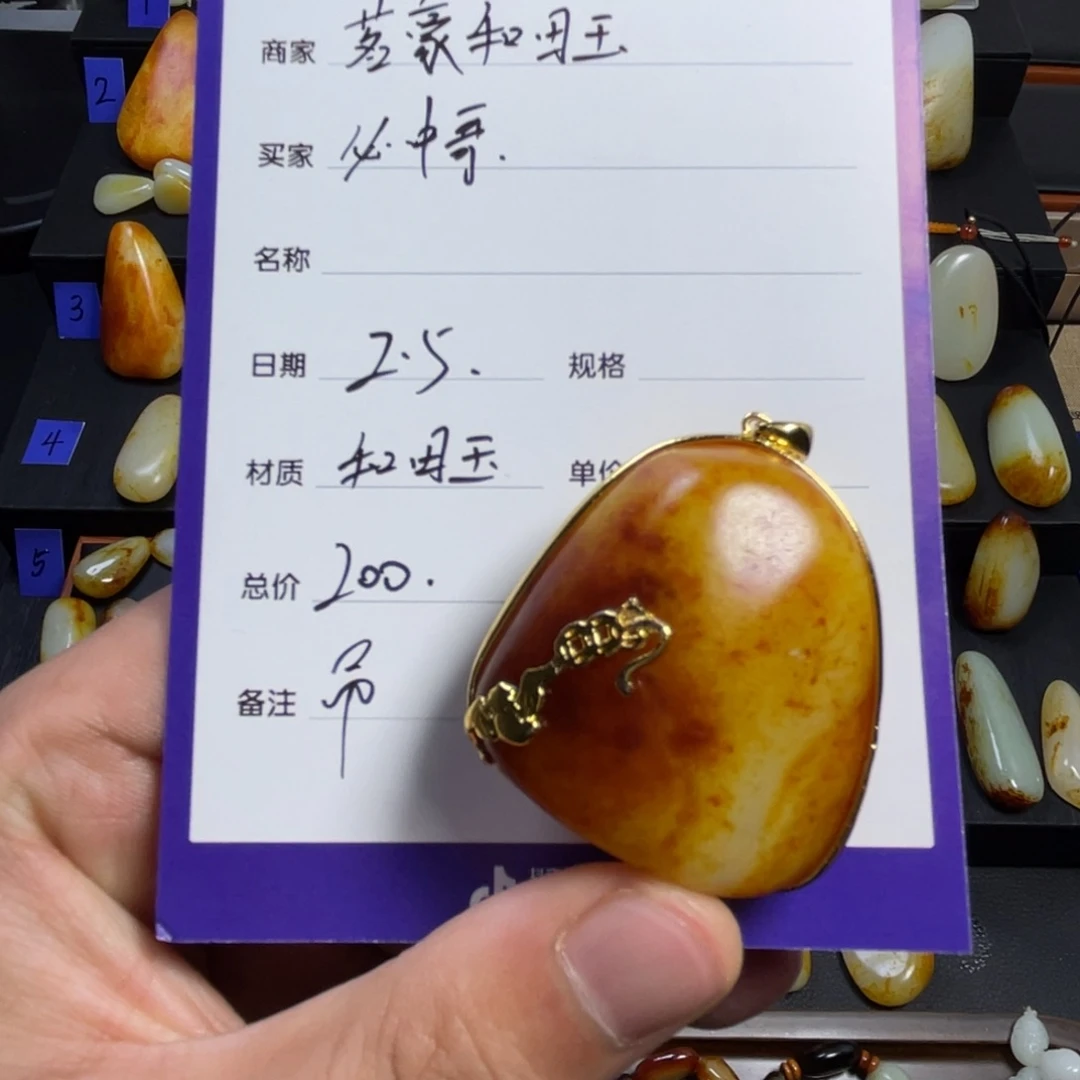 1
商家 茗豪和田玉
2
买家 必中哥.
名称
3
日期 2.5. 规格
4
材质 和田玉 单价
5
总价 200.
备注 吊